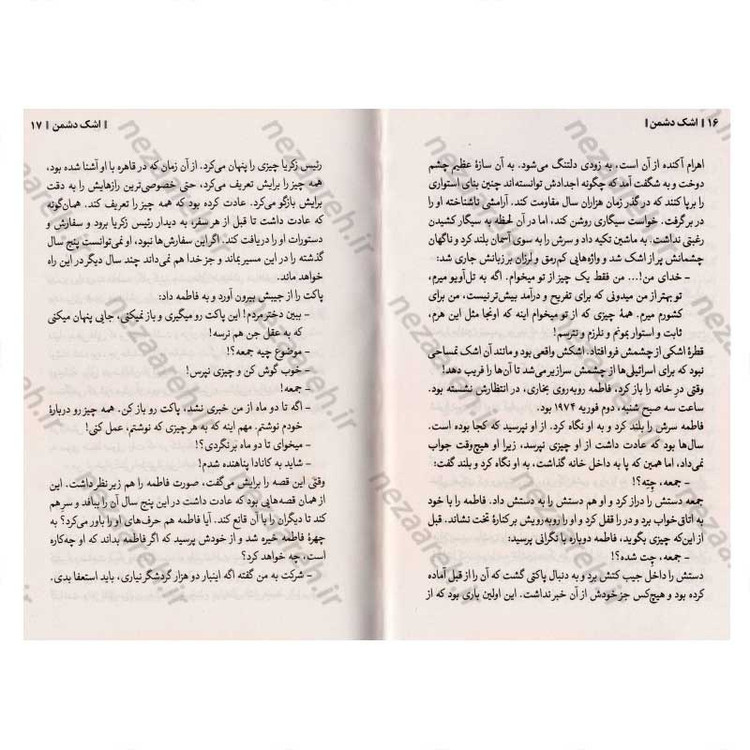 ۱۶ | اشک دشمن |
اهرام آکنده از آن است، به زودی دلتنگ می‌شود. به آن سازهٔ عظیم چشم
دوخت و به شگفت آمد که چگونه اجدادش توانسته‌اند چنین بنای استواری
را برپا کنند که در گذر زمان هزاران سال مقاومت کند. آرامشی ناشناخته او را
در بر گرفت. خواست سیگاری روشن کند، اما در آن لحظه به سیگار کشیدن
رغبتی نداشت. به ماشین تکیه داد و سرش را به سوی آسمان بلند کرد و ناگهان
چشمانش پر از اشک شد و واژه‌هایی کم‌رمق و لرزان بر زبانش جاری شد:
– خدای من!... من فقط یک چیز از تو میخوام. اگه به تل‌آویو میرم،
تو بهتر از من میدونی که برای تفریح و درآمد بیش‌تر نیست، من برای
کشورم میرم. همهٔ چیزی که از تو میخوام اینه که اونجا مثل این هرم،
ثابت و استوار بمونم و نلرزم و نترسم!
قطرهٔ اشکی از چشمش فرو افتاد. اشکش واقعی بود و مانند آن اشک تمساحی
نبود که برای اسرائیلی‌ها از چشمش سرازیر می‌شد تا آن‌ها را فریب دهد!
وقتی در خانه را باز کرد، فاطمه روبه‌روی بخاری، در انتظارش نشسته بود.
ساعت سه صبح شنبه، دوم فوریه ۱۹۷۴ بود.
فاطمه سرش را بلند کرد و به او نگاه کرد. از او نپرسید که کجا بوده است.
سال‌ها بود که عادت داشت از او چیزی نپرسد، زیرا او هیچ‌وقت جواب
نمی‌داد، اما همین که پا به داخل خانه گذاشت، به او نگاه کرد و بلند گفت:
– جمعه، چته؟!
جمعه دستش را دراز کرد و او هم دستش را به دستش داد. فاطمه را با خود
به اتاق خواب برد و در را قفل کرد و او را روبه‌رویش بر کنارهٔ تخت نشاند. قبل
از این‌که چیزی بگوید، فاطمه دوباره با نگرانی پرسید:
– جمعه، چت شده؟!
دستش را داخل جیب کتش برد و به دنبال پاکتی گشت که آن را از قبل آماده
کرده بود و هیچ‌کس جز خودش از آن خبر نداشت. این اولین باری بود که از
| اشک دشمن | ۱۷
رئیس زکریا چیزی را پنهان می‌کرد. از آن زمان که در قاهره با او آشنا شده بود،
همه چیز را برایش تعریف می‌کرد، حتی خصوصی‌ترین رازهایش را به دقت
برایش بازگو می‌کرد. عادت کرده بود که همه چیز را تعریف کند. همان‌گونه
که عادت داشت تا قبل از هر سفر، به دیدار رئیس زکریا برود و سفارش و
دستورات او را دریافت کند. اگر این سفارش‌ها نبود، او نمی‌توانست پنج سال
گذشته را در این مسیر بماند و جز خدا هم نمی‌داند چند سال دیگر در این راه
خواهد ماند.
پاکت را از جیبش بیرون آورد و به فاطمه داد:
– ببین دختر مردم! این پاکت رو میگیری و باز نمیکنی، جایی پنهان میکنی
که به عقل جن هم نرسه!
– موضوع چیه جمعه؟!
– خوب گوش کن و چیزی نپرس!
– جمعه!
– اگه تا دو ماه از من خبری نشد، پاکت رو باز کن. همه چیز رو دربارهٔ
خودم نوشتم. مهم اینه که به هر چیزی که نوشتم، عمل کنی!
– میخوای تا دو ماه برنگردی؟!
– شاید به کانادا پناهنده شدم!
وقتی این قصه را برایش می‌گفت، صورت فاطمه را هم زیر نظر داشت. این
از همان قصه‌هایی بود که عادت داشت در این پنج سال آن را ببافد و سر هم
کند تا دیگران را با آن قانع کند. آیا فاطمه هم حرف‌های او را باور می‌کرد؟ به
چهرهٔ فاطمه خیره شد و از خودش پرسید که اگر فاطمه بداند که او چه‌کاره
است، چه خواهد کرد؟
– شرکت به من گفته اگه اینبار دو هزار گردشگر نیاری، باید استعفا بدی.
nezaareh.ir